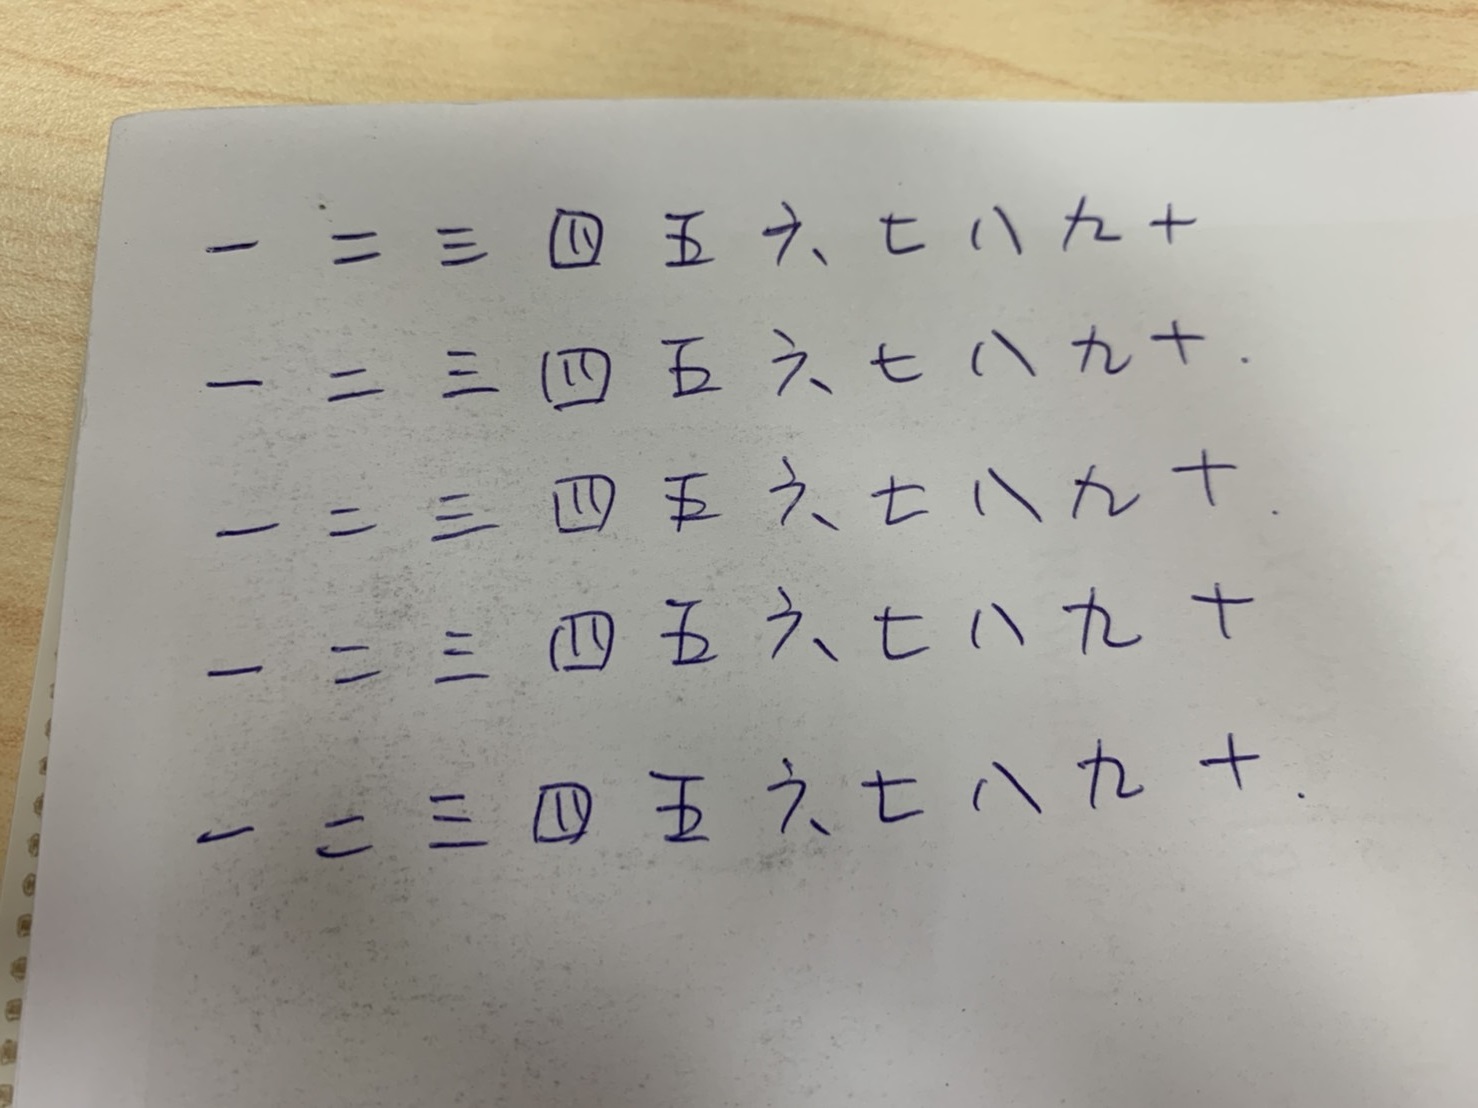 一 二 三 四 五 六 七 八 九 十
一 二 三 四 五 六 七 八 九 十.
一 二 三 四 五 六 七 八 九 十.
一 二 三 四 五 六 七 八 九 十
一 二 三 四 五 六 七 八 九 十.